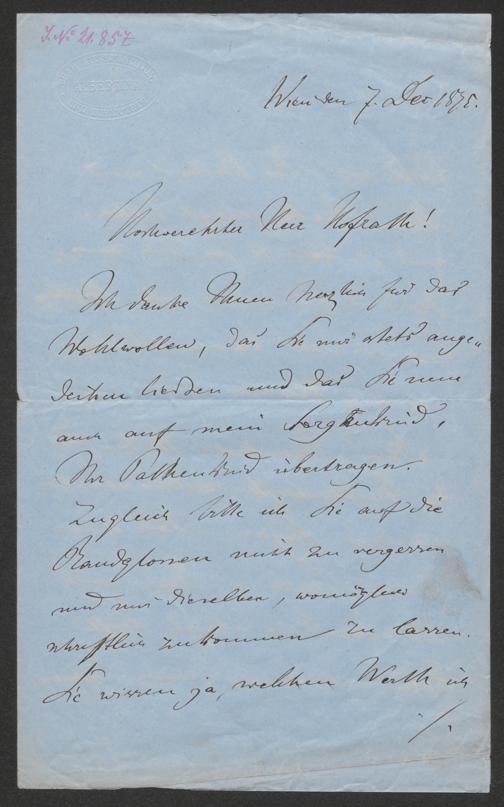 J. No 21.857
Wien den 7. Dec 1875.
Hochverehrter Herr Hofrath!
Ich danke Ihnen herzlich für das
Wohlwollen, das Sie mir stets ange„
deihen liessen und das Sie nun
auch auf mein Sorgenkind,
Ihr Pathenkind übertragen.
Zugleich bitte ich Sie auf die
Randglossen nicht zu vergessen
und mir dieselben, womöglich
schriftlich zukommen zu lassen.
Sie wissen ja, welchen Werth ich
./.